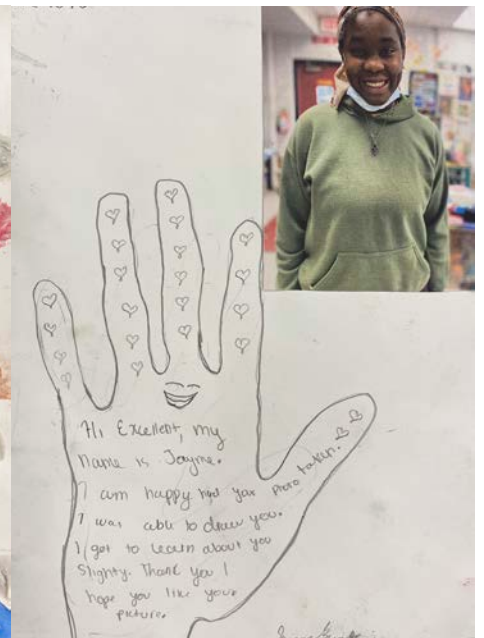 Hi Excellent, my
name is Jayme.
I am happy had your photo taken.
I was able to draw you.
I got to learn about you
Slighty. Thank you I
hope you like your
picture.